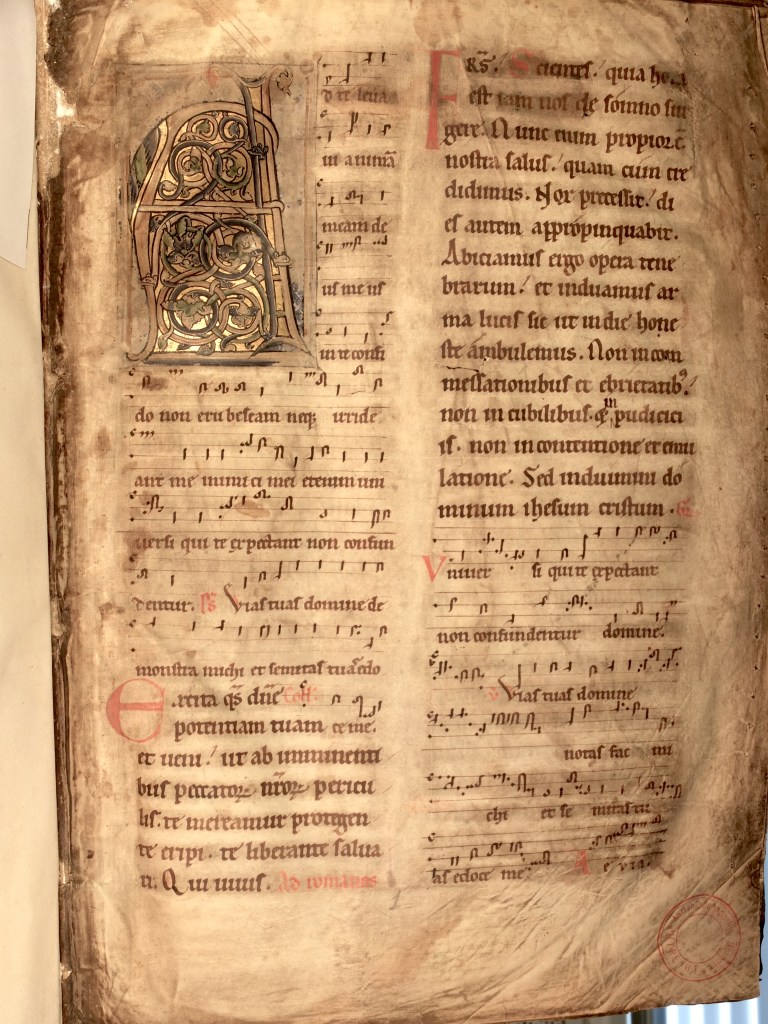 A
d te leua
ui animā
meam de
us meus
in te confi
do non erubescam neq; irride
ant me inimici mei etenim uni
uersi qui te expectant non confun
dentur. Ps̄ Vias tuas domine de
monstra michi et semitas tuas edo
Excita qs̄ dn̄e Coll.
potentiam tuam ce me.
et ueni. ut ab imminenti
bus peccatorꝝ nr̄orꝝ pericu
lis. te mereamur protegen
te eripi. te liberante salua
ri. Qui uiuis. Ad romanos
FRS̄. Scientes. quia hora
est iam nos de somno sur
gere. Nunc enim propior ē
nostra salus. quam cum cre
didimus. Nox precessit. di
es autem appropinquabit.
Abiciamus ergo opera tene
brarum. et induamur ar
ma lucis sic ut in die hone
ste ambulemus. Non in com
messationibus et ebrietatibꝰ.
non in cubilibus. et inpudicici
is. non in contentione et emu
latione. Sed induimini do
minum ihesum cristum. G
Vniuer si qui te expectant
non confundentur domine.
V Vias tuas domine
notas fac mi
chi et se mitas tu
as edoce me. A e via.